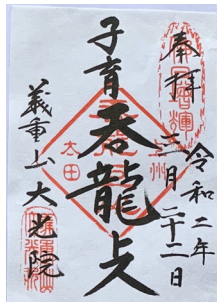 奉拝
令和二年
三月二十二日
子育呑龍上人
上州
太田
義重山大光院